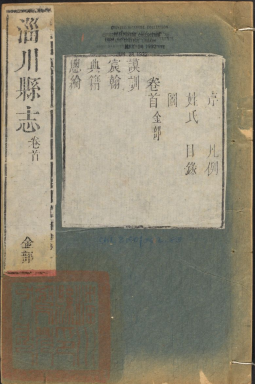 序 凡例
姓氏 目錄
圖
卷首 金部
謨訓
宸翰
典籍
淄川縣志 卷首
金部